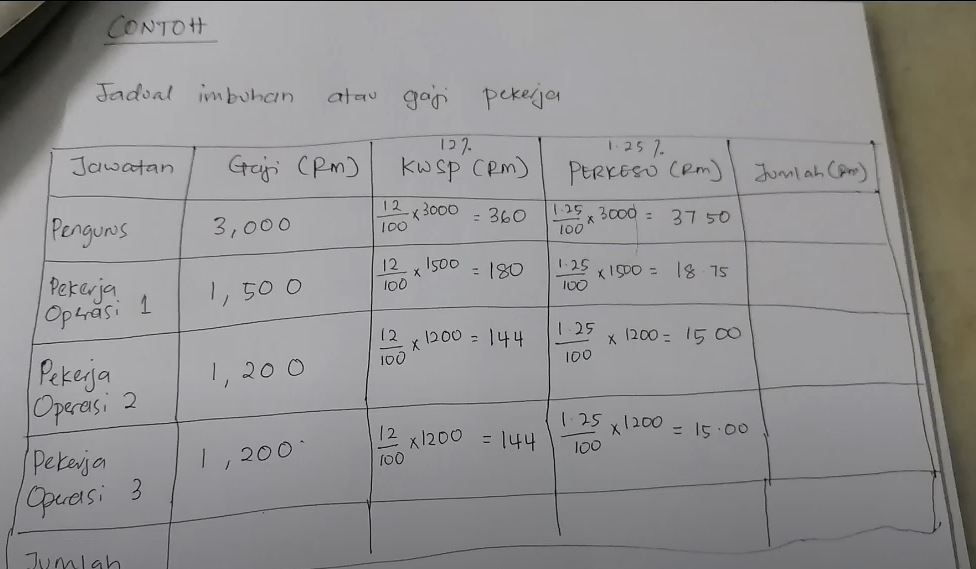 CONTOH
Jadual imbuhan atau gaji pekerja
Jawatan Gaji (RM) 12% KWSP (RM) 1.25% PERKESO (RM) Jumlah (RM)
Pengurus 3,000 12/100 x 3000 = 360 1.25/100 x 3000 = 37 50
Pekerja Operasi 1 1,500 12/100 x 1500 = 180 1.25/100 x 1500 = 18.75
Pekerja Operasi 2 1,200 12/100 x 1200 = 144 1.25/100 x 1200 = 15 00
Pekerja Operasi 3 1,200 12/100 x 1200 = 144 1.25/100 x 1200 = 15.00
Jumlah